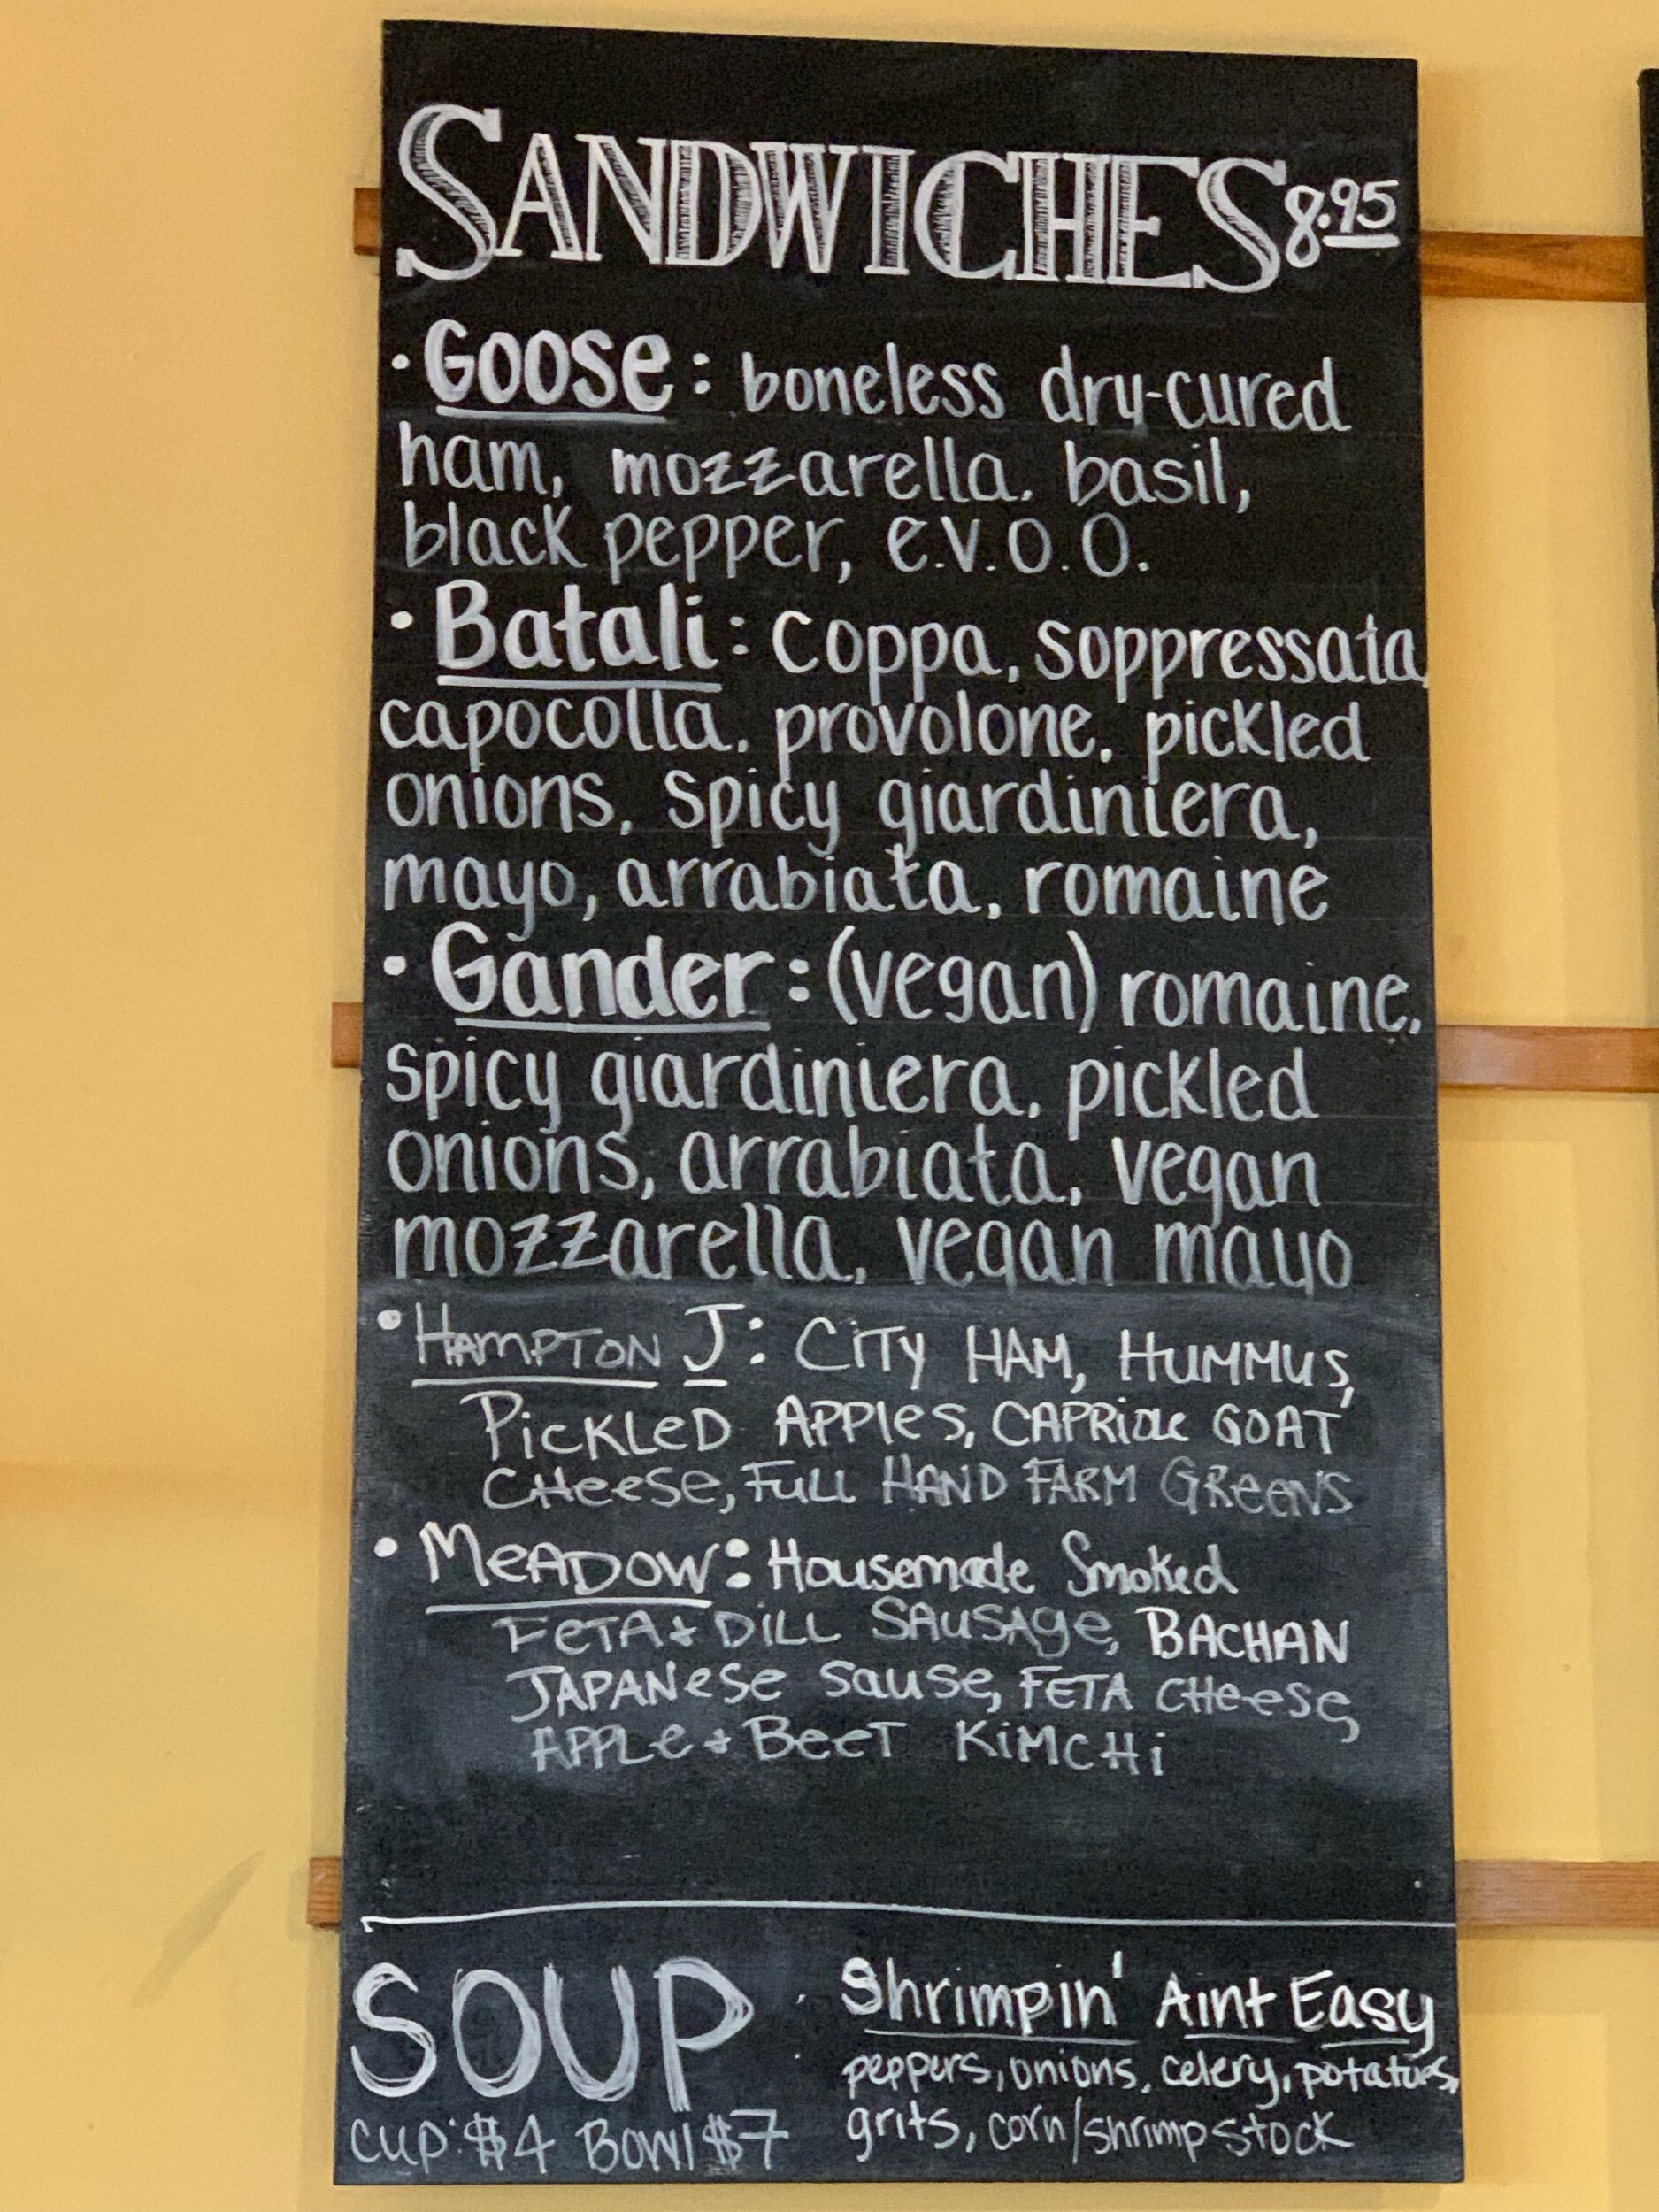 SANDWICHES 8.95
· Goose: boneless dry-cured
ham, mozzarella. basil,
black pepper, e.v.o.o.
· Batali: coppa, soppressata,
capocolla. provolone. pickled
onions. spicy giardiniera,
mayo, arrabiata. romaine
· Gander: (vegan) romaine.
spicy giardiniera. pickled
onions, arrabiata. vegan
mozzarella. vegan mayo
• HAMPTON J: CiTy HAM, HUMMUS,
PicKLeD APPles, CAPRiole GOAT
CHeese, FuLL HAND FARM GReeNS
• MeADOW: Housemade Smoked
FeTA + DiLL SAusage, BACHAN
JAPANese sause, FETA CHeese,
APPLe + BeeT KiMCHi
SOUP · Shrimpin' Aint Easy
peppers, onions, celery, potatoes,
grits, corn/shrimp stock
cup: $4 Bowl $7